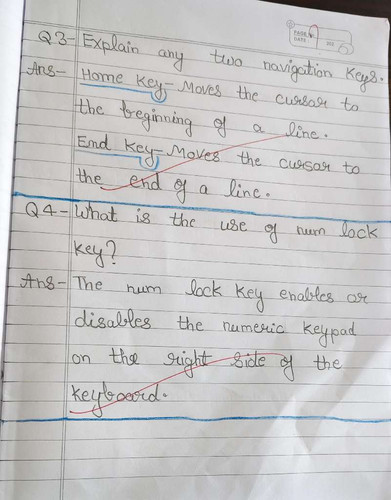 PAGE
DATE
Q3- Explain any two navigation keys.
Ans- Home key- Moves the cursor to
the beginning of a line.
End key- Moves the cursor to
the end of a line.
Q4- What is the use of num lock
key?
Ans- The num lock key enables or
disables the numeric keypad
on the right side of the
keyboard.